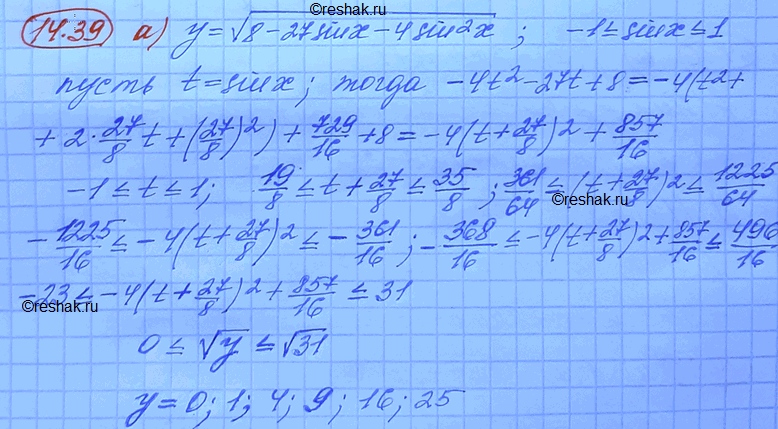 ©reshak.ru
14.39 а) y=√(8-27sinx-4sin²x); -1≤sinx≤1
пусть t=sinx; тогда -4t²-27t+8=-4(t²+
+2·27/8 t+(27/8)²)+729/16+8=-4(t+27/8)²+857/16
-1≤t≤1; 19/8≤t+27/8≤35/8; 361/64≤(t+27/8)²≤1225/64
©reshak.ru
-1225/16≤-4(t+27/8)²≤-361/16; -368/16≤-4(t+27/8)²+857/16≤496/16
-23≤-4(t+27/8)²+857/16≤31
©reshak.ru
0≤√y≤√31
y=0; 1; 4; 9; 16; 25
©reshak.ru